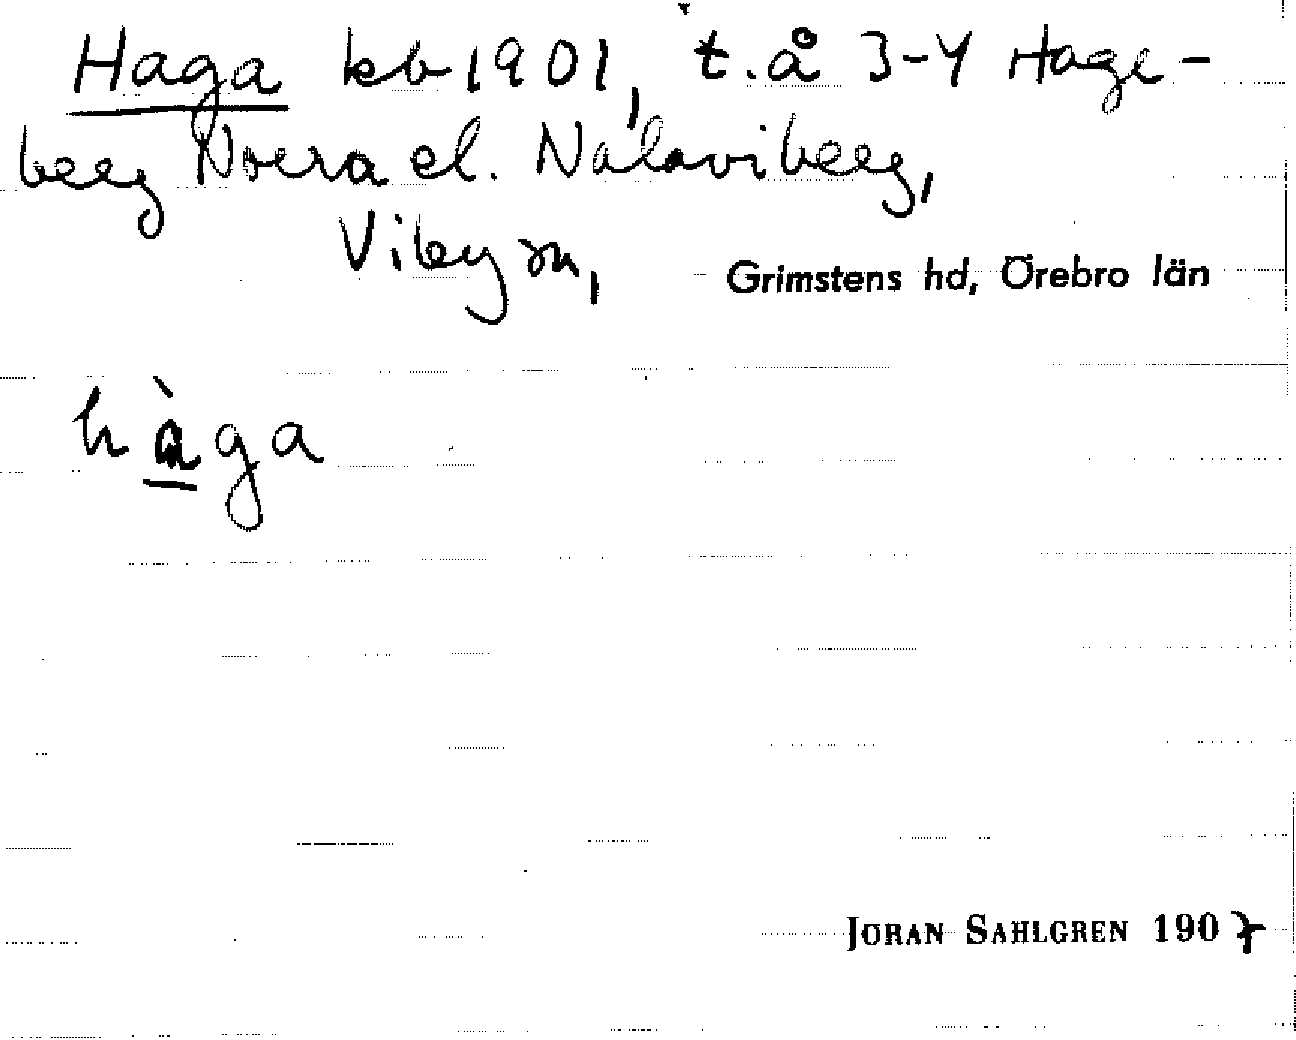 Haga kb 1901, t. å 3-4 Hage-
berg Norra el. Nalaviberg,
Viby sn, Grimstens hd, Örebro län
hàga
JÖRAN SAHLGREN 1907